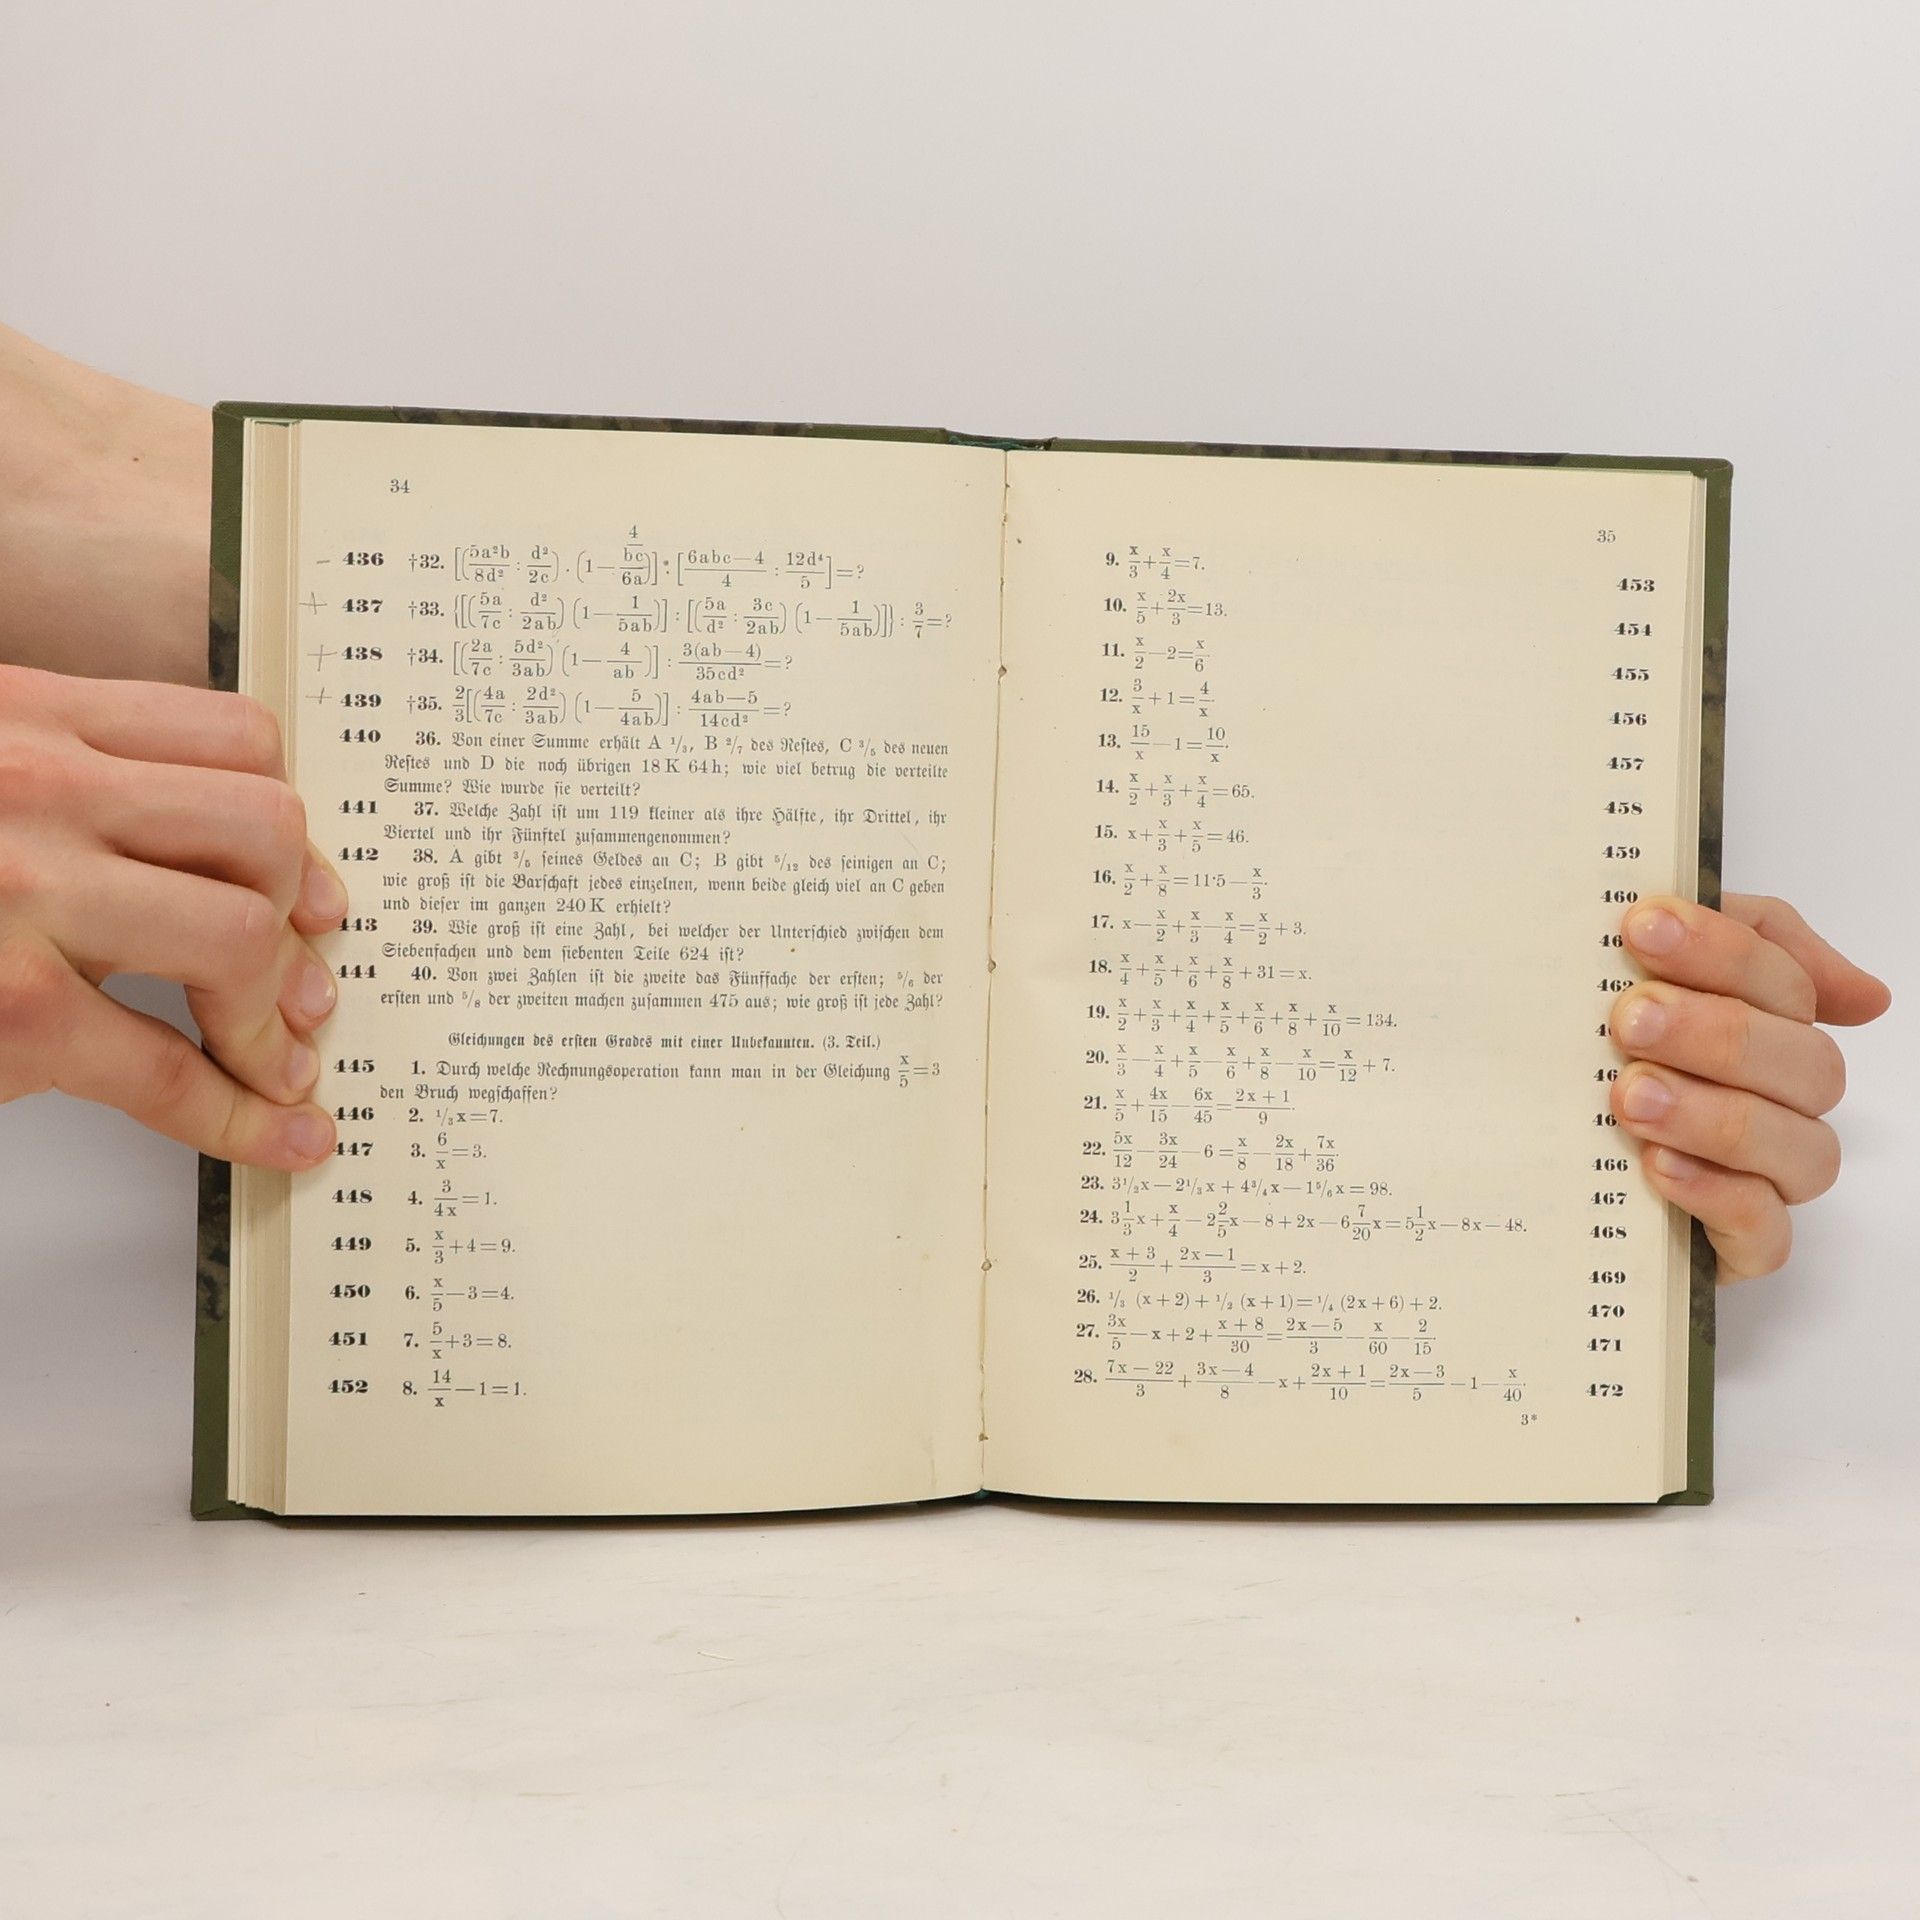 34
436 †32. [(5a²b/8d² : d²/2c) . (1 — 4/bc/6a)] : [6abc—4/4 : 12d⁴/5] = ?
437 †33. {[(5a/7c : d²/2ab) (1 — 1/5ab)] : [(5a/d² : 3c/2ab) (1 — 1/5ab)]} : 3/7 = ?
438 †34. [(2a/7c : 5d²/3ab) (1 — 4/ab)] : 3(ab—4)/35cd² = ?
439 †35. 2/3[(4a/7c : 2d²/3ab) (1 — 5/4ab)] : 4ab—5/14cd² = ?
440 36. Von einer Summe erhält A ¹/₃, B ²/₇ des Restes, C ³/₅ des neuen
Restes und D die noch übrigen 18 K 64 h; wie viel betrug die verteilte
Summe? Wie wurde sie verteilt?
441 37. Welche Zahl ist um 119 kleiner als ihre Hälfte, ihr Drittel, ihr
Viertel und ihr Fünftel zusammengenommen?
442 38. A gibt ³/₅ seines Geldes an C; B gibt ⁵/₁₂ des seinigen an C;
wie groß ist die Barschaft jedes einzelnen, wenn beide gleich viel an C geben
und dieser im ganzen 240 K erhielt?
443 39. Wie groß ist eine Zahl, bei welcher der Unterschied zwischen dem
Siebenfachen und dem siebenten Teile 624 ist?
444 40. Von zwei Zahlen ist die zweite das Fünffache der ersten; ⁵/₆ der
ersten und ⁵/₈ der zweiten machen zusammen 475 aus; wie groß ist jede Zahl?
Gleichungen des ersten Grades mit einer Unbekannten. (3. Teil.)
445 1. Durch welche Rechnungsoperation kann man in der Gleichung x/5 = 3
den Bruch wegschaffen?
446 2. ¹/₃ x = 7.
447 3. 6/x = 3.
448 4. 3/4x = 1.
449 5. x/3 + 4 = 9.
450 6. x/5 — 3 = 4.
451 7. 5/x + 3 = 8.
452 8. 14/x — 1 = 1.
35
9. x/3 + x/4 = 7. 453
10. x/5 + 2x/3 = 13. 454
11. x/2 — 2 = x/6. 455
12. 3/x + 1 = 4/x. 456
13. 15/x — 1 = 10/x. 457
14. x/2 + x/3 + x/4 = 65. 458
15. x + x/3 + x/5 = 46. 459
16. x/2 + x/8 = 11·5 — x/3. 460
17. x — x/2 + x/3 — x/4 = x/2 + 3. 46
18. x/4 + x/5 + x/6 + x/8 + 31 = x. 462
19. x/2 + x/3 + x/4 + x/5 + x/6 + x/8 + x/10 = 134. 4
20. x/3 — x/4 + x/5 — x/6 + x/8 — x/10 = x/12 + 7. 46
21. x/5 + 4x/15 — 6x/45 = 2x + 1/9. 46
22. 5x/12 — 3x/24 — 6 = x/8 — 2x/18 + 7x/36. 466
23. 3¹/₂x — 2¹/₃x + 4³/₄x — 1⁵/₆x = 98. 467
24. 3 1/3 x + x/4 — 2 2/5 x — 8 + 2x — 6 7/20 x = 5 1/2 x — 8x — 48. 468
25. x + 3/2 + 2x — 1/3 = x + 2. 469
26. ¹/₃ (x + 2) + ¹/₂ (x + 1) = ¹/₄ (2x + 6) + 2. 470
27. 3x/5 — x + 2 + x + 8/30 = 2x — 5/3 — x/60 — 2/15. 471
28. 7x — 22/3 + 3x — 4/8 — x + 2x + 1/10 = 2x — 3/5 — 1 — x/40. 472
3*